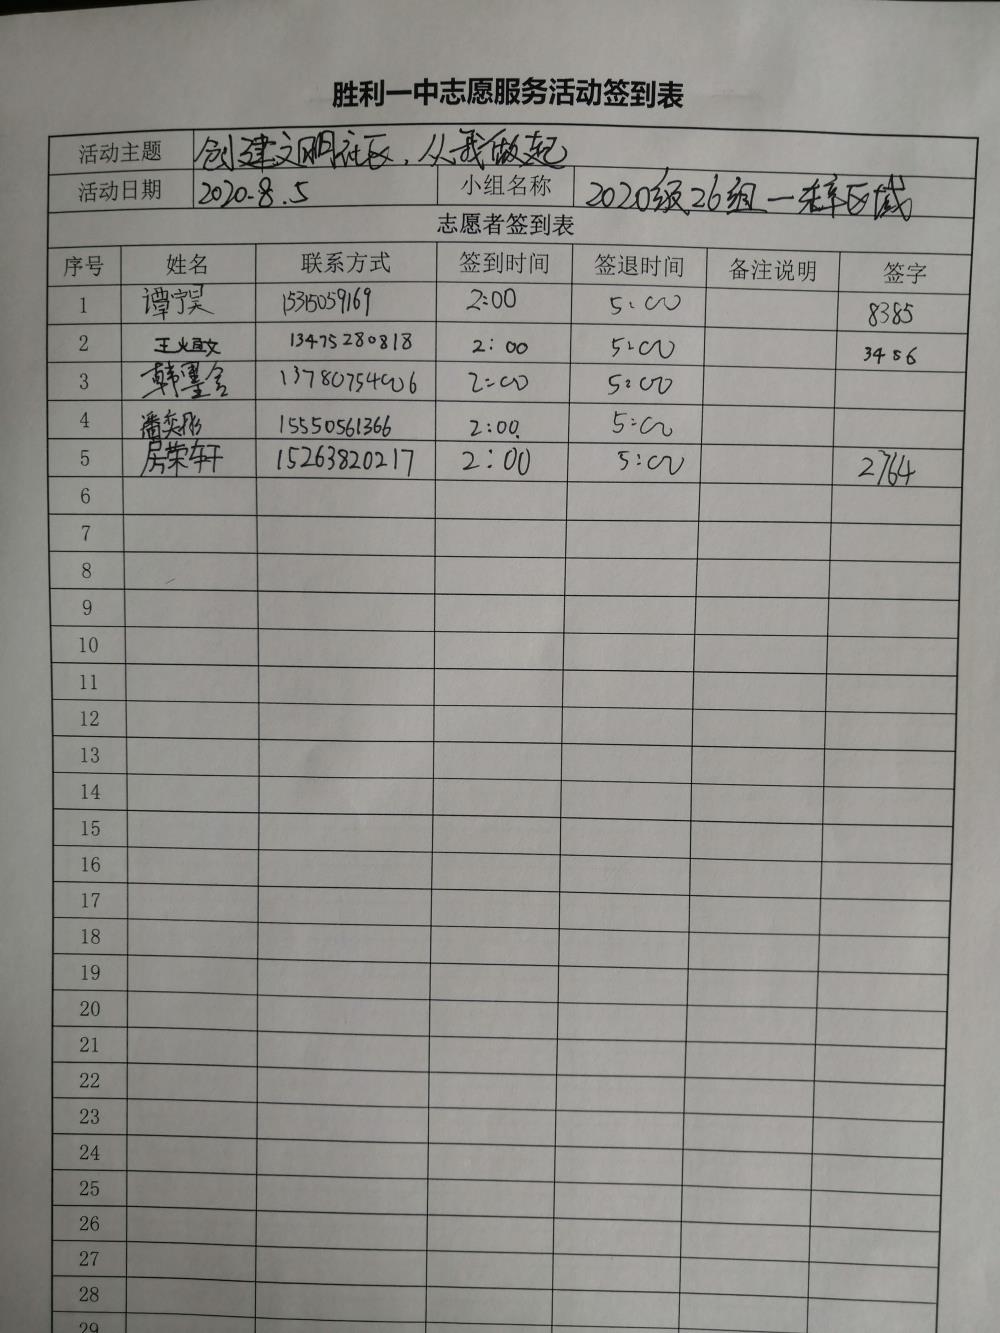 胜利一中志愿服务活动签到表
活动主题 创建文明社区，从我做起
活动日期 2020.8.5 小组名称 2020级26组一梓区域
志愿者签到表
序号 姓名 联系方式 签到时间 签退时间 备注说明 签字
1 谭宁昊 15315059169 2:00 5:00 8385
2 13475280818 2:00 5:00 3486
3 韩墨含 13780754006 2:00 5:00
4 潘奕彤 15550561366 2:00 5:00
5 房荣轩 15263820217 2:00 5:00 2764
6
7
8
9
10
11
12
13
14
15
16
17
18
19
20
21
22
23
24
25
26
27
28
29